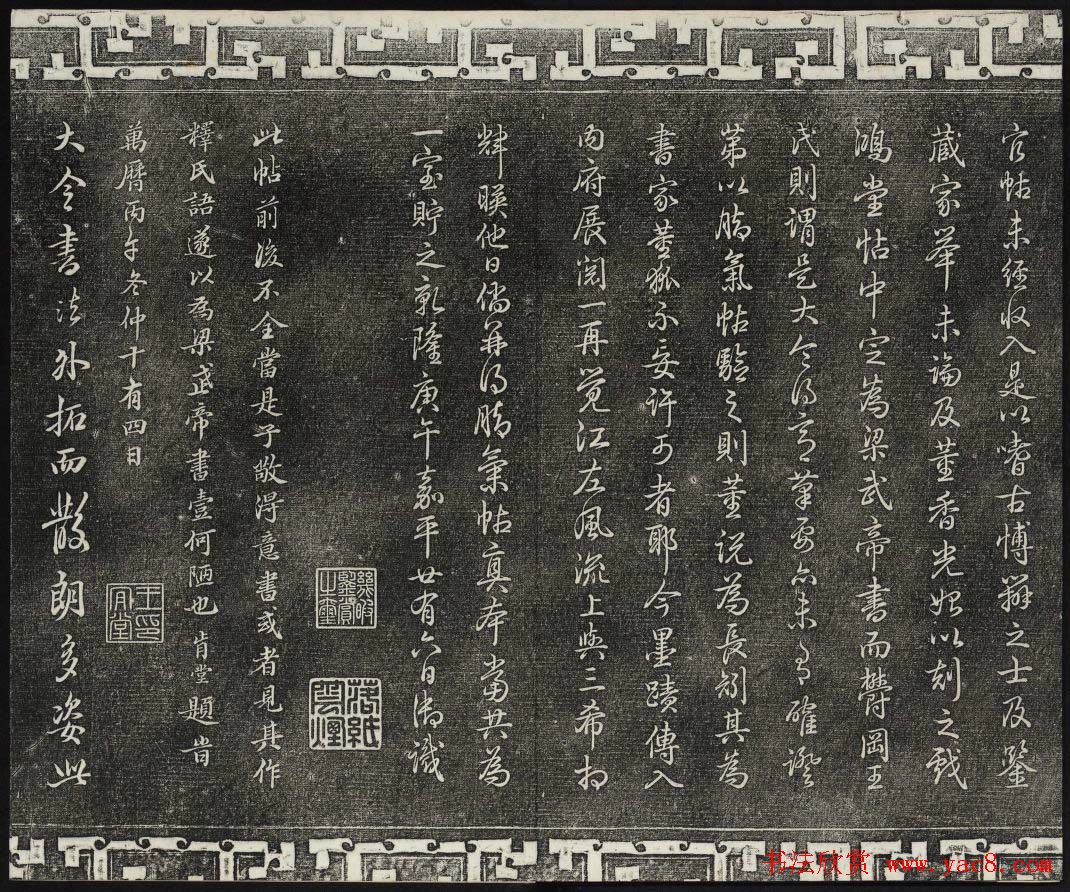 官帖未經收入是以嗜古博辯之士及鑒
藏家举未論及董香光始以刻之戲
鴻堂帖中定為梁武帝書而欝岡王
氏則謂是大令得意筆要亦未為確證
第以腊氣帖驗之則董说為長匆其為
書家董狐不妄許可者耶今墨蹟傳入
内府展閱一再覺江左風流上與三希相
輝暎他日倘并得腊氣帖真本當共為
一室貯之乾隆庚午嘉平廿有六日御識
幾暇鑒賞之璽
落紙雲煙
此帖前後不全當是子敬得意書或者見其作
釋氏語遂以為梁武帝書壹何陋也肯堂題旹
萬曆丙午冬仲十有四日
王印肯堂
大令書法外拓而散朗多姿此
书法欣赏 www.yac8.com